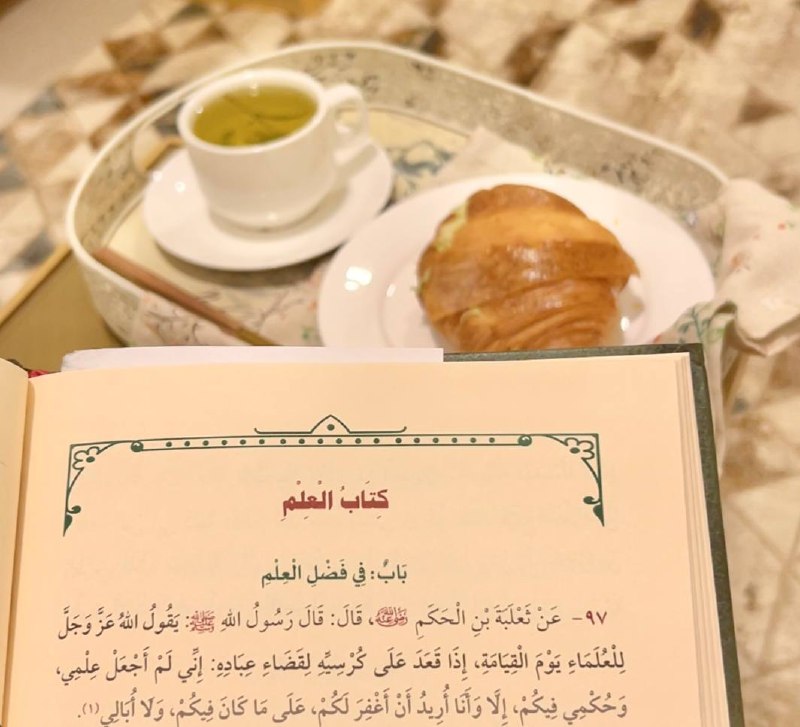 كِتَابُ الْعِلْمِ
بَابٌ: فِي فَضْلِ الْعِلْمِ
٩٧- عَنْ ثَعْلَبَةَ بْنِ الْحَكَمِ رضي الله عنه، قَالَ: قَالَ رَسُولُ اللهِ ﷺ: يَقُولُ اللهُ عَزَّ وَجَلَّ
لِلْعُلَمَاءِ يَوْمَ الْقِيَامَةِ، إِذَا قَعَدَ عَلَى كُرْسِيِّهِ لِقَضَاءِ عِبَادِهِ: إِنِّي لَمْ أَجْعَلْ عِلْمِي،
وَحُكْمِي فِيكُمْ، إِلَّا وَأَنَا أُرِيدُ أَنْ أَغْفِرَ لَكُمْ، عَلَى مَا كَانَ فِيكُمْ، وَلَا أُبَالِي (١).